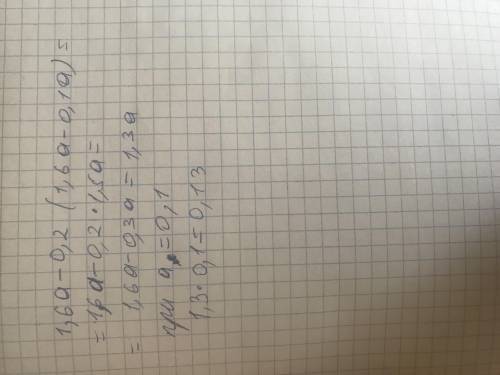 1,6a-0,2(1,6a-0,1a)=
=1,6a-0,2·1,5a=
=1,6a-0,3a=1,3a
при a=0,1
1,3·0,1=0,13